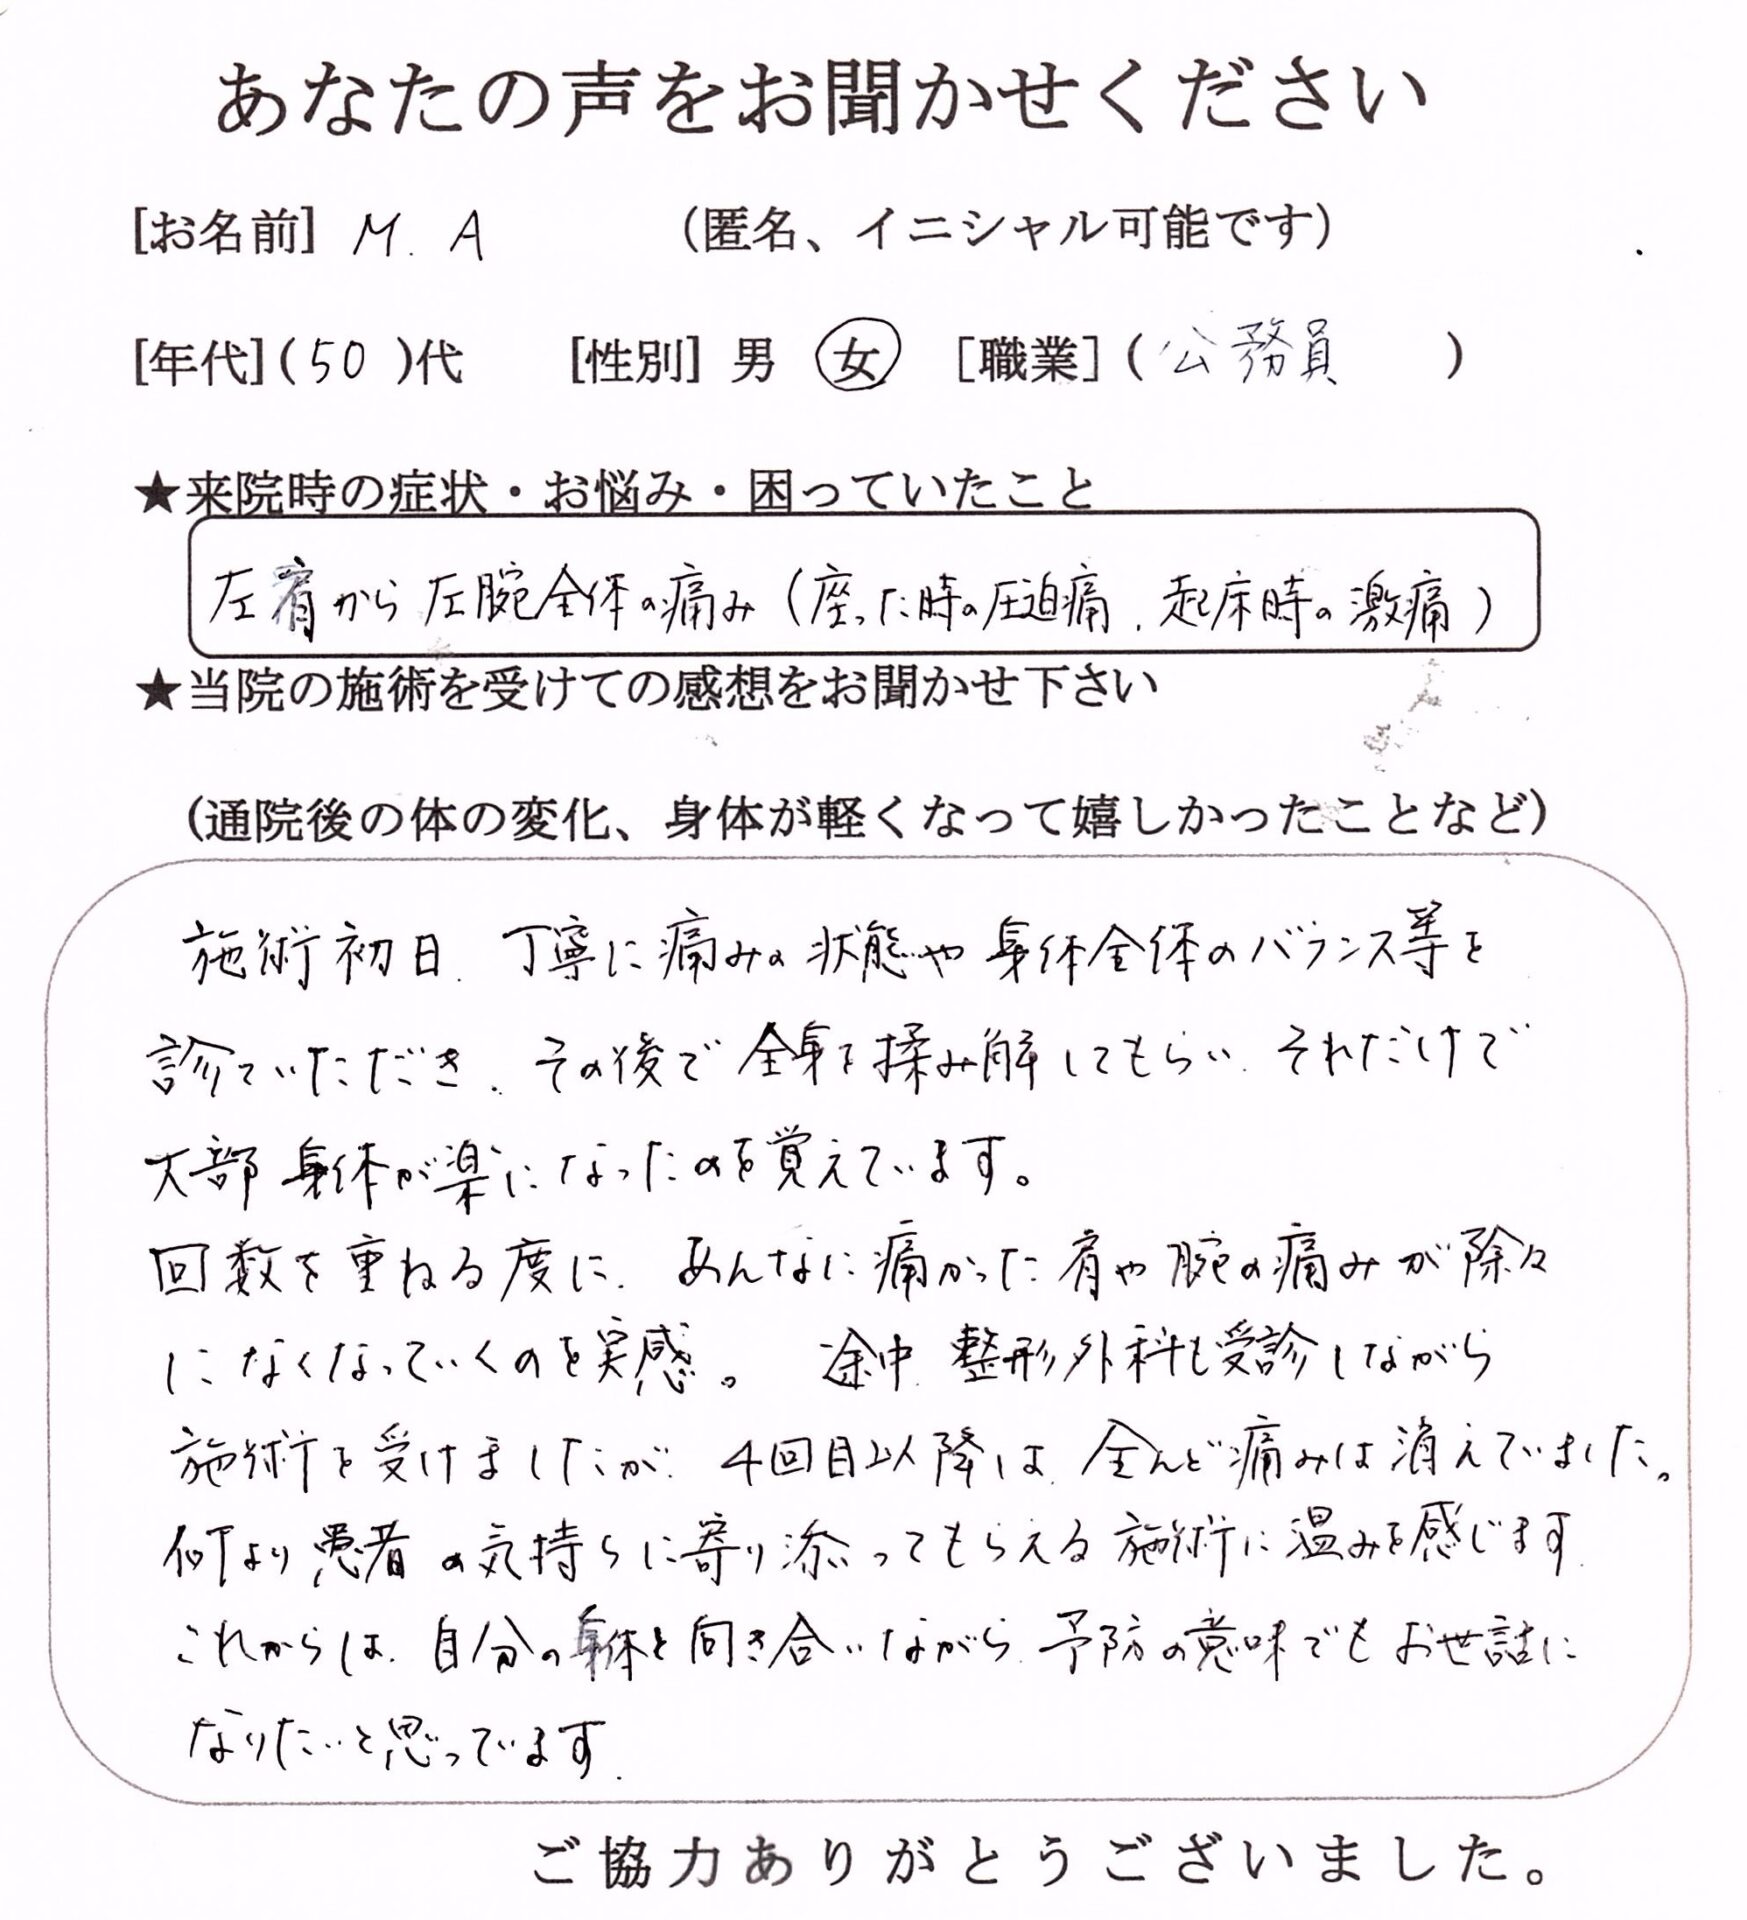 あなたの声をお聞かせください
[お名前] M.A (匿名、イニシャル可能です)
[年代](50)代 [性別] 男 女 [職業](公務員)
★来院時の症状・お悩み・困っていたこと
左肩から左腕全体の痛み(座った時の圧迫痛、起床時の激痛)
★当院の施術を受けての感想をお聞かせ下さい
(通院後の体の変化、身体が軽くなって嬉しかったことなど)
施術初日、丁寧に痛みの状態や身体全体のバランス等を
診ていただき、その後で全身を揉み解してもらい、それだけで
大部身体が楽になったのを覚えています。
回数を重ねる度に、あんなに痛かった肩や腕の痛みが除々
になくなっていくのを実感。 途中、整形外科も受診しながら
施術を受けましたが、4回目以降は、全んど痛みは消えていました。
何より患者の気持ちに寄り添ってもらえる施術に温みを感じます。
これからは、自分の身体と向き合いながら、予防の意味でもお世話に
なりたいと思っています。
ご協力ありがとうございました。